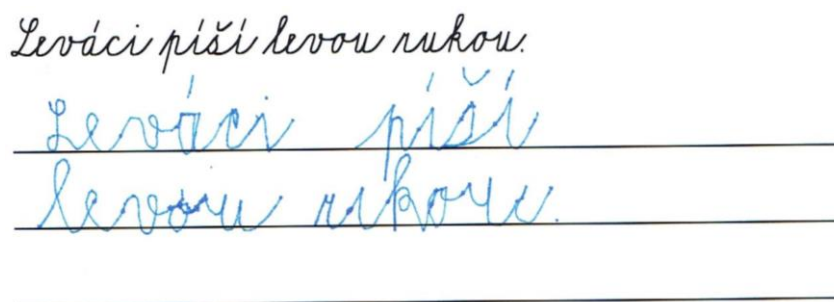 Leváci píší levou rukou.
Leváci píší
levou rukou.